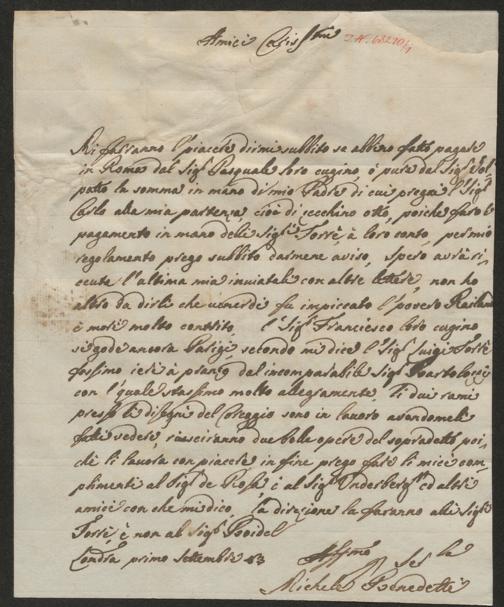 Amici Cariss.mi I.N. 68210/1
Mi farranno l'piacere dirmi subbito se abbino fatto pagare
in Roma dal Sig.r Pasquale loro cugino, ó pure dal Sig.r Vol-
pato la somma in mano di mio Padre di cui pregai l'Sig.r
Carlo alla mia partenza, cioé di zecchino otto, poiche farò l
pagamento in mano delli Sig.ri Torré, à loro conto, per mio
regolamento prego subbito darmene aviso, Spero avrà ri-
ceuta l'ultima mia inviatali con altre lettere, non ho
altro da dirli che venerdi fu impiccato l'povero
é mori molto contrito, l'Sig.r Francesco loro cugino
si gode ancora Parigi, secondo mi dice l'Sig.r Luigi Torré
fossimo ieri à pranzo dal incomparabile Sig.r Bartolozzi
con l'quale stassimo molto allegramente, li dui rami
presso li disegni del Coreggio sono in lavoro avendomeli
fatti vedere, riusciranno due belle opere del sopradetto poi-
ché li lavora con piacere, in fine prego fare li miei com-
plimenti al Sig.r de Rossi é al Sig.r Underberg.r ed altri
amici con che mi dico, La direzione la faranno alli Sig.ri
Torré, é non al Sig.r Boidel
Londra primo settembre 83
Aff.mo Ser.
Michele Benedetti